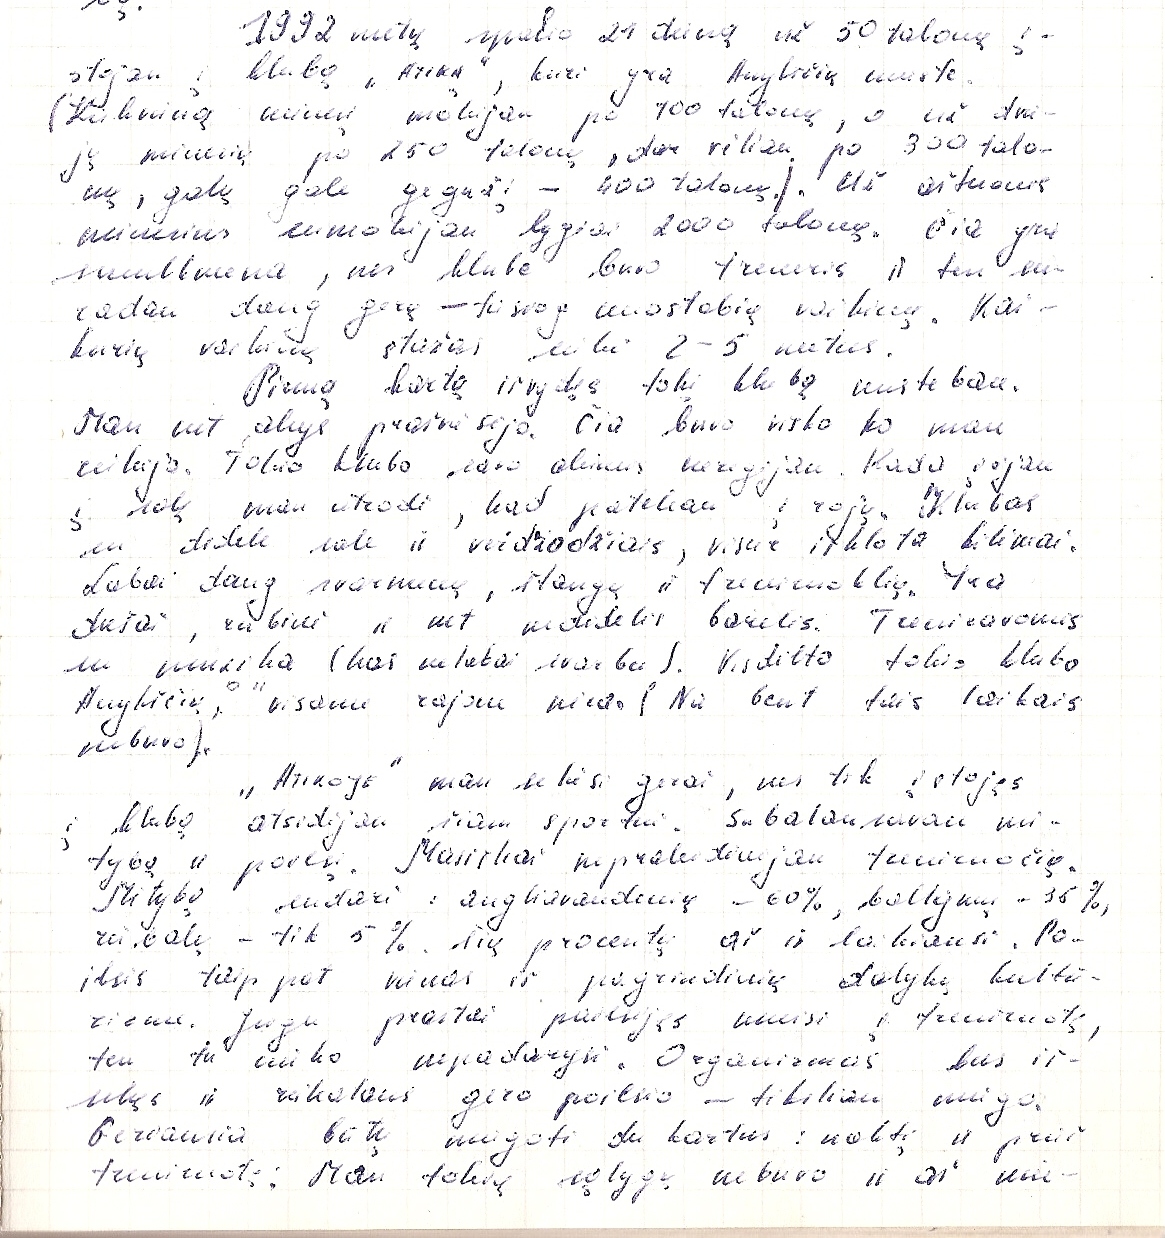 1992 metų spalio 21 dieną už 50 talonų į-
stojau į klubą „Arika", kuri yra Anykščių mieste.
(Kiekvieną mėnesį mokėjau po 100 talonų, o už dvie-
jų mėnesių po 250 talonų, dar vėliau po 300 talo-
nų, galų gale gegužį – 400 talonų.). Už aštuonis
mėnesius sumokėjau lygiai 2000 talonų. Čia yra
smulkmena, nes klube buvo treneris ir ten su-
radau daug gerų – tiesiog nuostabių vaikinų. Kai-
kurių vaikinų stažas siekė 2-5 metus.
Pirmą kartą išvydęs tokį klubą nustebau.
Man net akyse prašviesėjo. Čia buvo visko ko man
reikėjo. Tokio klubo savo akimis neregėjau. Kada įėjau
į salę man atrodė, kad patekau į rojų. Klubas
su didele sale ir veidrodžiais, visur iškloti kilimai.
Labai daug svarmenų, štangų ir treniruoklių. Yra
dušai, rūbinė ir net nedidelis barelis. Treniravomės
su muzika (kas nelabai svarbu). Vis dėlto tokio klubo
Anykščių visame rajone nėra. (Na bent tais laikais
nebuvo).
„Arikoje" man sekėsi gerai, nes tik įstojęs
į klubą atsidėjau šiam sportui. Subalansavau mi-
tybą ir poilsį. Masiškai nepraleidinėjau treniruočių.
Mitybą sudarė: angliavandenių – 60%, baltymų – 35%,
riebalų – tik 5%. Šių procentų aš ir laikiausi. Po-
ilsis taip pat vienas iš pagrindinių dalykų kultū-
rizme. Jeigu prastai pailsėjęs nueisi į treniruotę,
ten tu nieko nepadarysi. Organizmas bus iš-
sekęs ir reikalaus gero poilsio – tikėkian miego.
Geriausia būtų miegoti du kartus: naktį ir prieš
treniruotę. Man tokių sąlygų nebuvo ir aš mie-